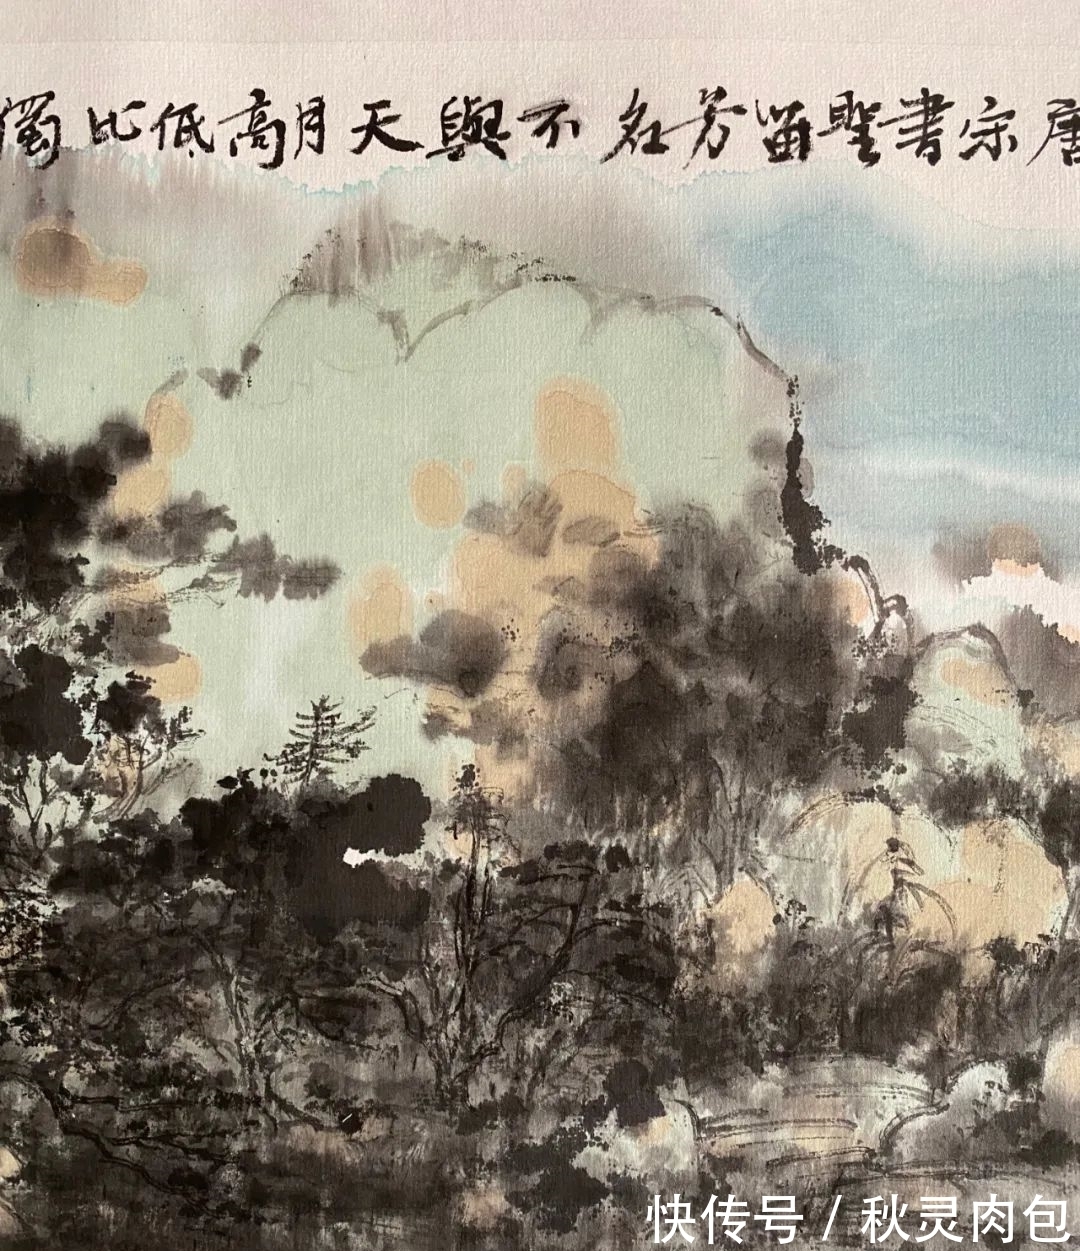 唐宋書聖留芳名不與天月高低比獨
快传号 / 秋灵肉包